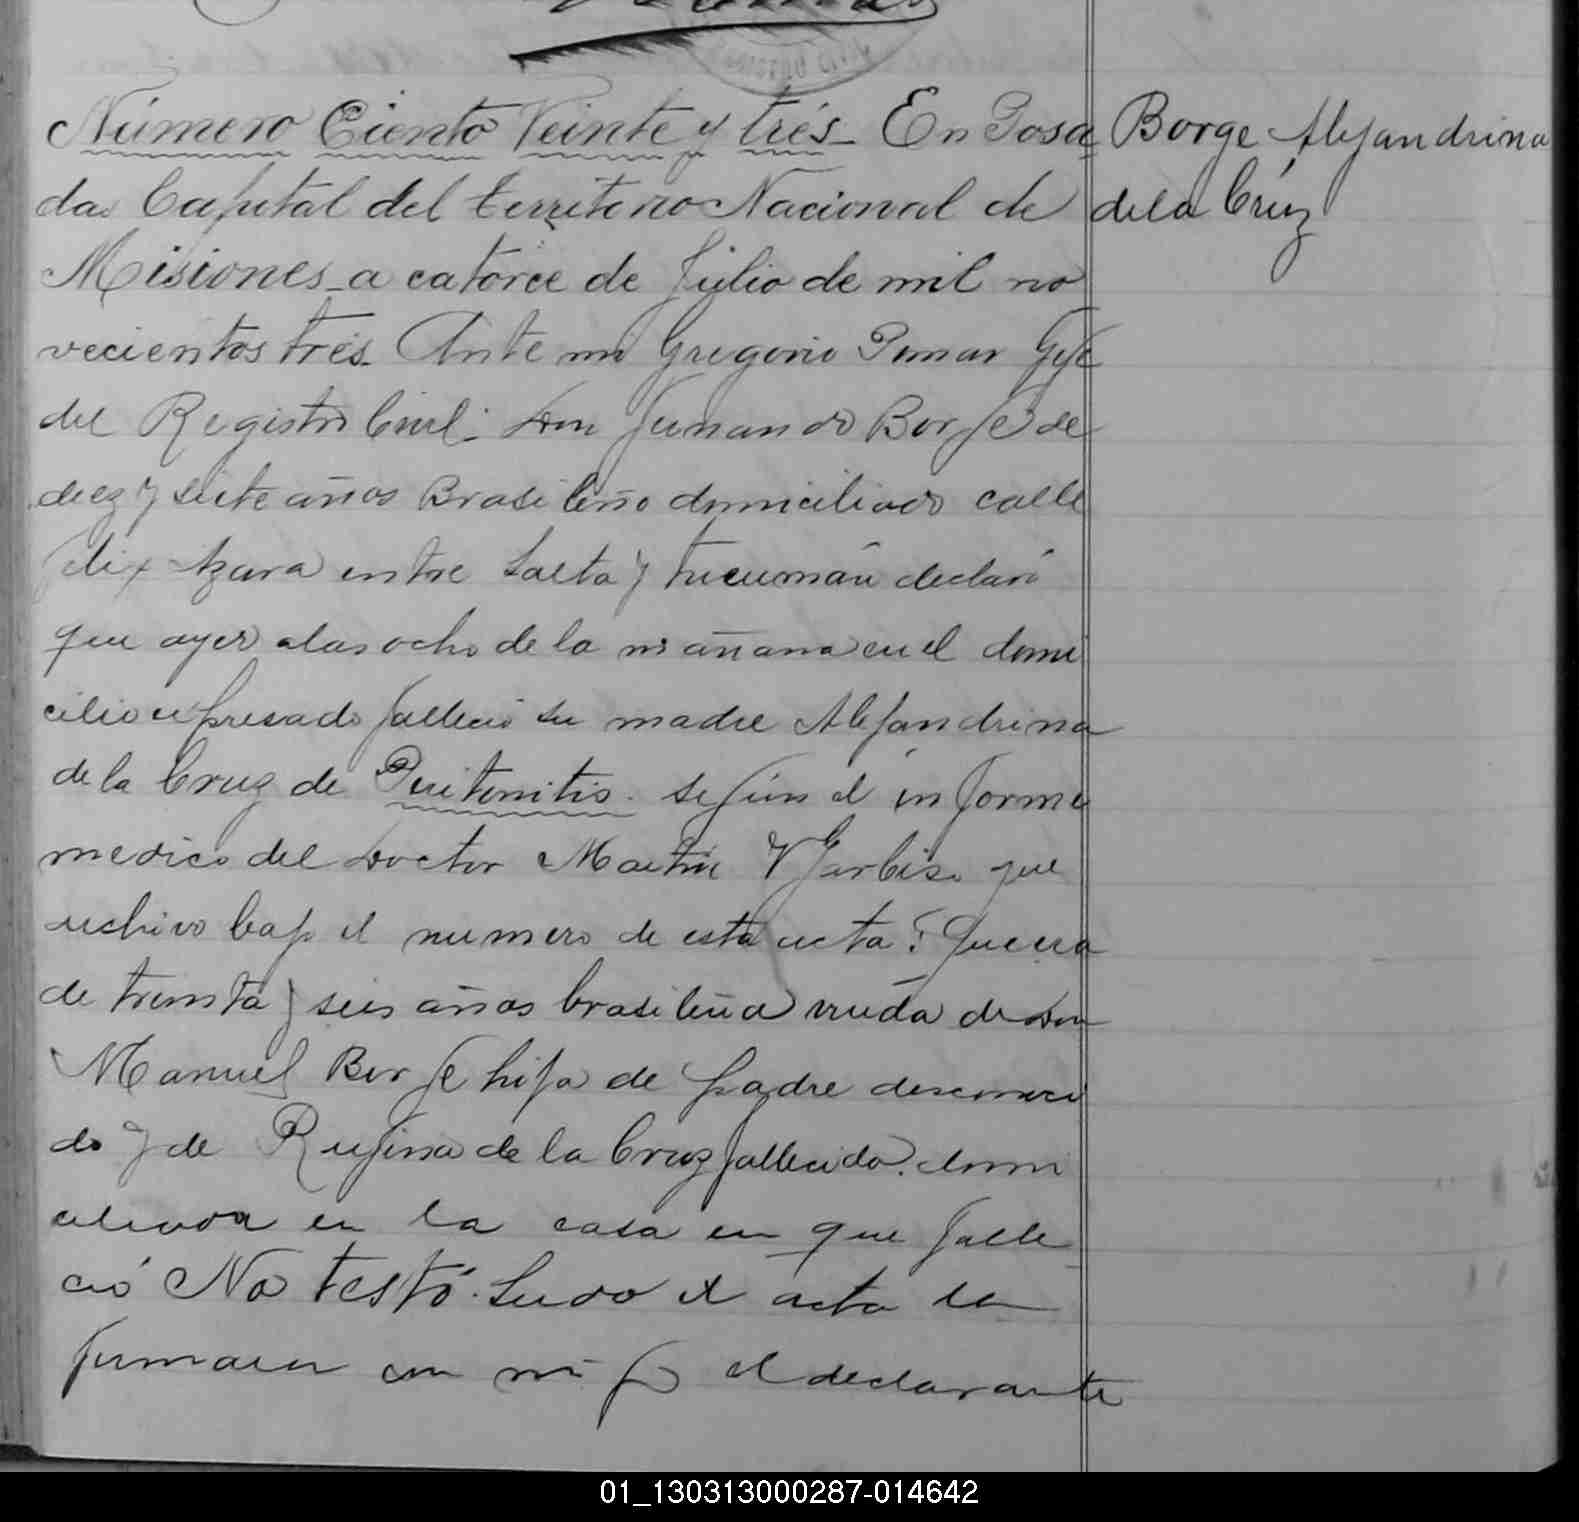 Número Ciento Veinte y trés_ En Posa
das Capital del territorio Nacional de
Misiones_a catorce de Julio de mil no
vecientos trés_ Ante mi Gregorio Pomar Gefe
del Registro Civil_ Don Fernando Borje de
diez y siete años Brasileño domiciliado calle
Felix Azara entre Salta y Tucumán declaró
que ayer alas ocho de la mañana en el domi
cilio expresado fallecio su madre Alejandrina
de la Cruz de Peritonitis. según el informe
medico del Doctor Martin Garbiso que
archivo bajo el numero de esta acta: Que era
de treinta y seis años brasileña viuda de Don
Manuel Borje hija de padre desconoci
do y de Rufina de la Cruz fallecida. domi
ciliada en la casa en que falle
ció No testó. Leida el acta la
firmaron con migo el declarante
Borge Alejandrina
dela Crúz
01_130313000287-014642